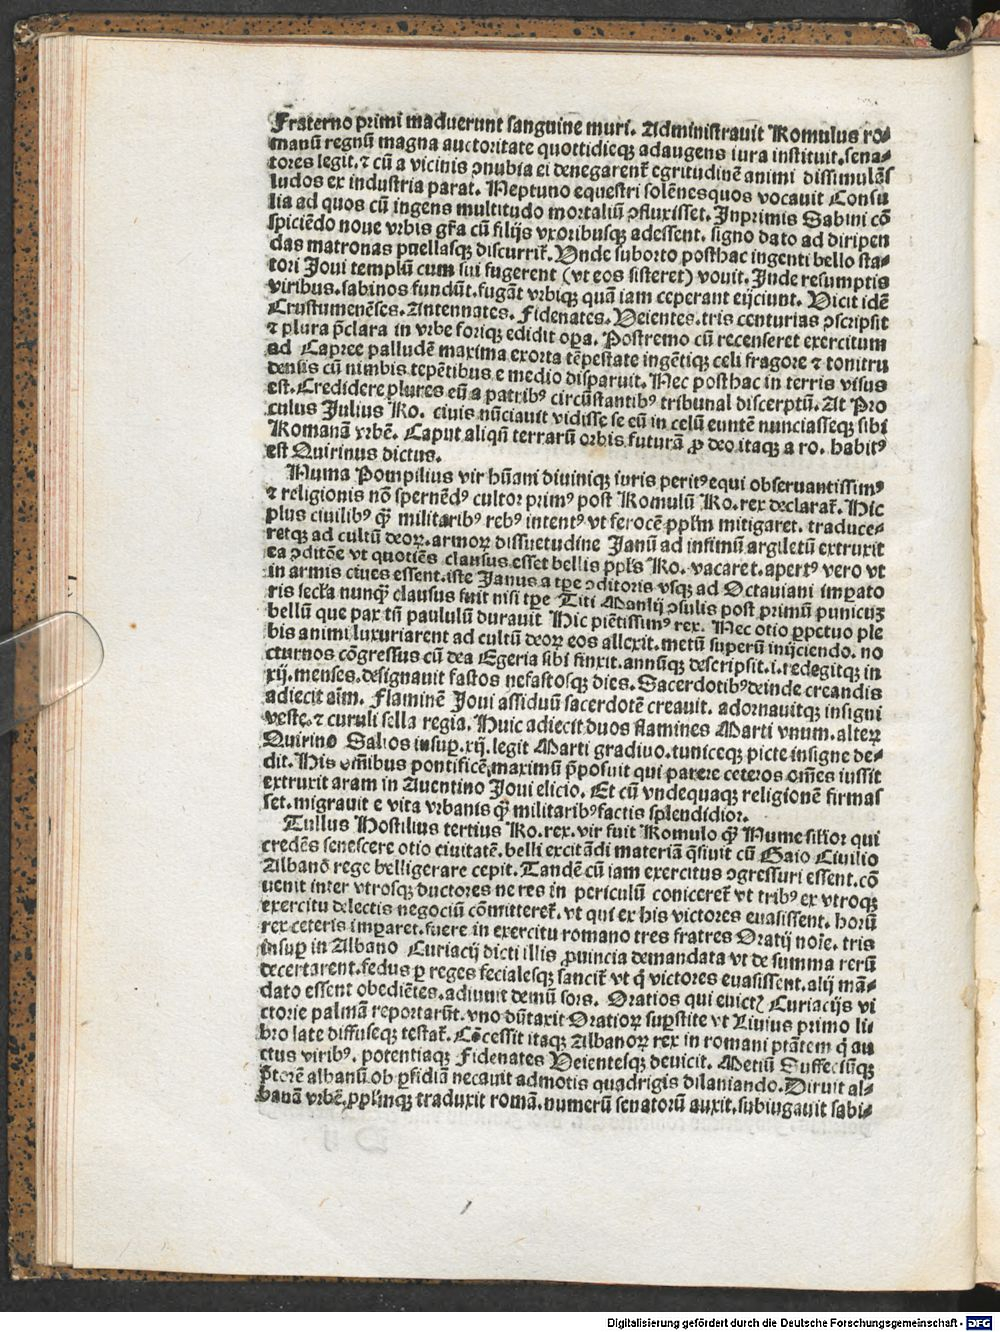 Fraterno primi maduerunt sanguine muri. Administravit Romulus ro-
manū regnū magna auctoritate quottidieqꝫ adaugens iura instituit. sena-
tores legit. ⁊ cū a vicinis ꝯnubia ei denegarent᷑ egritudinē animi dissimulās
ludos ex industria parat. Neptuno equestri solēnes quos vocauit Consu
lia ad quos cū ingens multitudo mortaliū ꝯfluxisset. Inprimis Sabini cō
spiciēdo noue vrbis gr̄a cū filijs vxoribusqꝫ adessent. signo dato ad diripen
das matronas puellasqꝫ discurrit᷑. Vnde suborto posthac ingenti bello sta-
tori Joui templū cum sui fugerent (vt eos sisteret) vouit. Inde resumptis
viribus. sabinos fundūt. fugāt vrbiqꝫ quā iam ceperant eijciunt. Vicit idē
Crustumenēses. Antennates. Fidenates. Veientes. tris centurias ꝯscripsit
⁊ plura p̄clara in vrbe foriqꝫ edidit oꝑa. Postremo cū recenseret exercitum
ad Capree palludē maxima exorta tēpestate ingētiqꝫ celi fragore ⁊ tonitru
densis cū nimbis tepētibus e medio disparuit. Nec posthac in terris visus
est. Credidere plures eū a patribꝰ circūstantibꝰ tribunal discerptū. At Pro
culus Julius Ro. ciuis nūciauit vidisse se eū in celū euntē nunciasseqꝫ sibi
Romanā vrbē. Caput aliqñ terrarū orbis futurā ꝓ deo itaqꝫ a ro. habitꝰ
est Quirinus dictus.
Numa Pompilius vir hūani diuiniqꝫ iuris peritꝰ equi obseruantissimꝰ
⁊ religionis nō spernēdꝰ cultor primꝰ post Romulū Ro. rex declarat᷑. Hic
plus ciuilibꝰ qꝫ̄ militaribꝰ rebꝰ intentꝰ vt ferocē pplm̄ mitigaret. traduce-
retqꝫ ad cultū deoꝝ. armoꝝ dissuetudine Janū ad infimū argiletū extruxit
ea ꝯditōe vt quotiēs clausus esset bellis ppl̄s Ro. vacaret. apertꝰ vero vt
in armis ciues essent. iste Janus a tꝑe ꝯditoris vsqꝫ ad Octauiani imꝑato
ris secl̄a nunqꝫ̄ clausus fuit nisi tꝑe Titi Manlij ꝯsulis post primū punicuꝫ
bellū que pax tn̄ paululū durauit Hic piētissimꝰ rex. Nec otio ꝑpetuo ple
bis animi luxuriarent ad cultū deoꝝ eos allexit. metū superū inijciendo. no
cturnos cōgressus cū dea Egeria sibi finxit. annūqꝫ descripsit. i. redegitqꝫ in
xij. menses. designauit fastos nefastosqꝫ dies. Sacerdotibꝰ deinde creandis
adiecit aīm. Flaminē Joui assiduū sacerdotē creauit. adornauitqꝫ insigni
veste. ⁊ curuli sella regia. Huic adiecit duos flamines Marti vnum. alteꝝ
Quirino Salios insuꝑ. xij. legit Marti gradiuo. tuniceqꝫ picte insigne de-
dit. His oīmibus pontificē maximū p̄posuit qui parere ceteros oīnes iussit
extruxit aram in Auentino Joui elicio. Et cū vndequaqꝫ religionē firmas
set. migrauit e vita vrbanis qꝫ̄ militaribꝰ factis splendidior.
Tullus Hostilius tertius Ro. rex. vir fuit Romulo qꝫ̄ Nume sil̄ior qui
credēs senescere otio ciuitatē. belli excitādi materiā q̄siuit cū Gaio Ciuilio
Albanō rege belligerare cepit. Tandē cū iam exercitus ꝯgressuri essent. cō
uenit inter vtrosqꝫ ductores ne res in periculū conicerent᷑ vt tribꝰ ex vtroqꝫ
exercitu delectis negociū cōmitteret᷑. vt qui ex his victores euasissent. horū
rex ceteris imꝑaret. fuere in exercitu romano tres fratres Oratij noīe. tris
insuꝑ in Albano Curiacij dicti illis ꝓuincia demandata vt de summa rerū
decertarent. fedus ꝑ reges fecialesqꝫ sancit᷑ vt q̄ victores euasissent. alij mā-
dato essent obediētes. adiuuit demū sors. Oratios qui euict᷑ Curiacijs vi
ctorie palmā reportarūt. vno dūtaxit Oratioꝝ suꝑstite vt Liuius primo li
bro late diffuseqꝫ testat᷑. Cōcessit itaqꝫ Albanoꝝ rex in romani ptātem q̄ au
ctus viribꝰ. potentiaqꝫ Fidenates Veientesqꝫ deuicit. Metiū Suffeciūqꝫ
p̄torē albanū ob ꝑfidiā necauit admotis quadrigis dilaniando. Diruit al-
banā vrbē. pplm̄qꝫ traduxit romā. numerū senatorū auxit. subiugauit sabi-
Digitalisierung gefördert durch die Deutsche Forschungsgemeinschaft - DFG